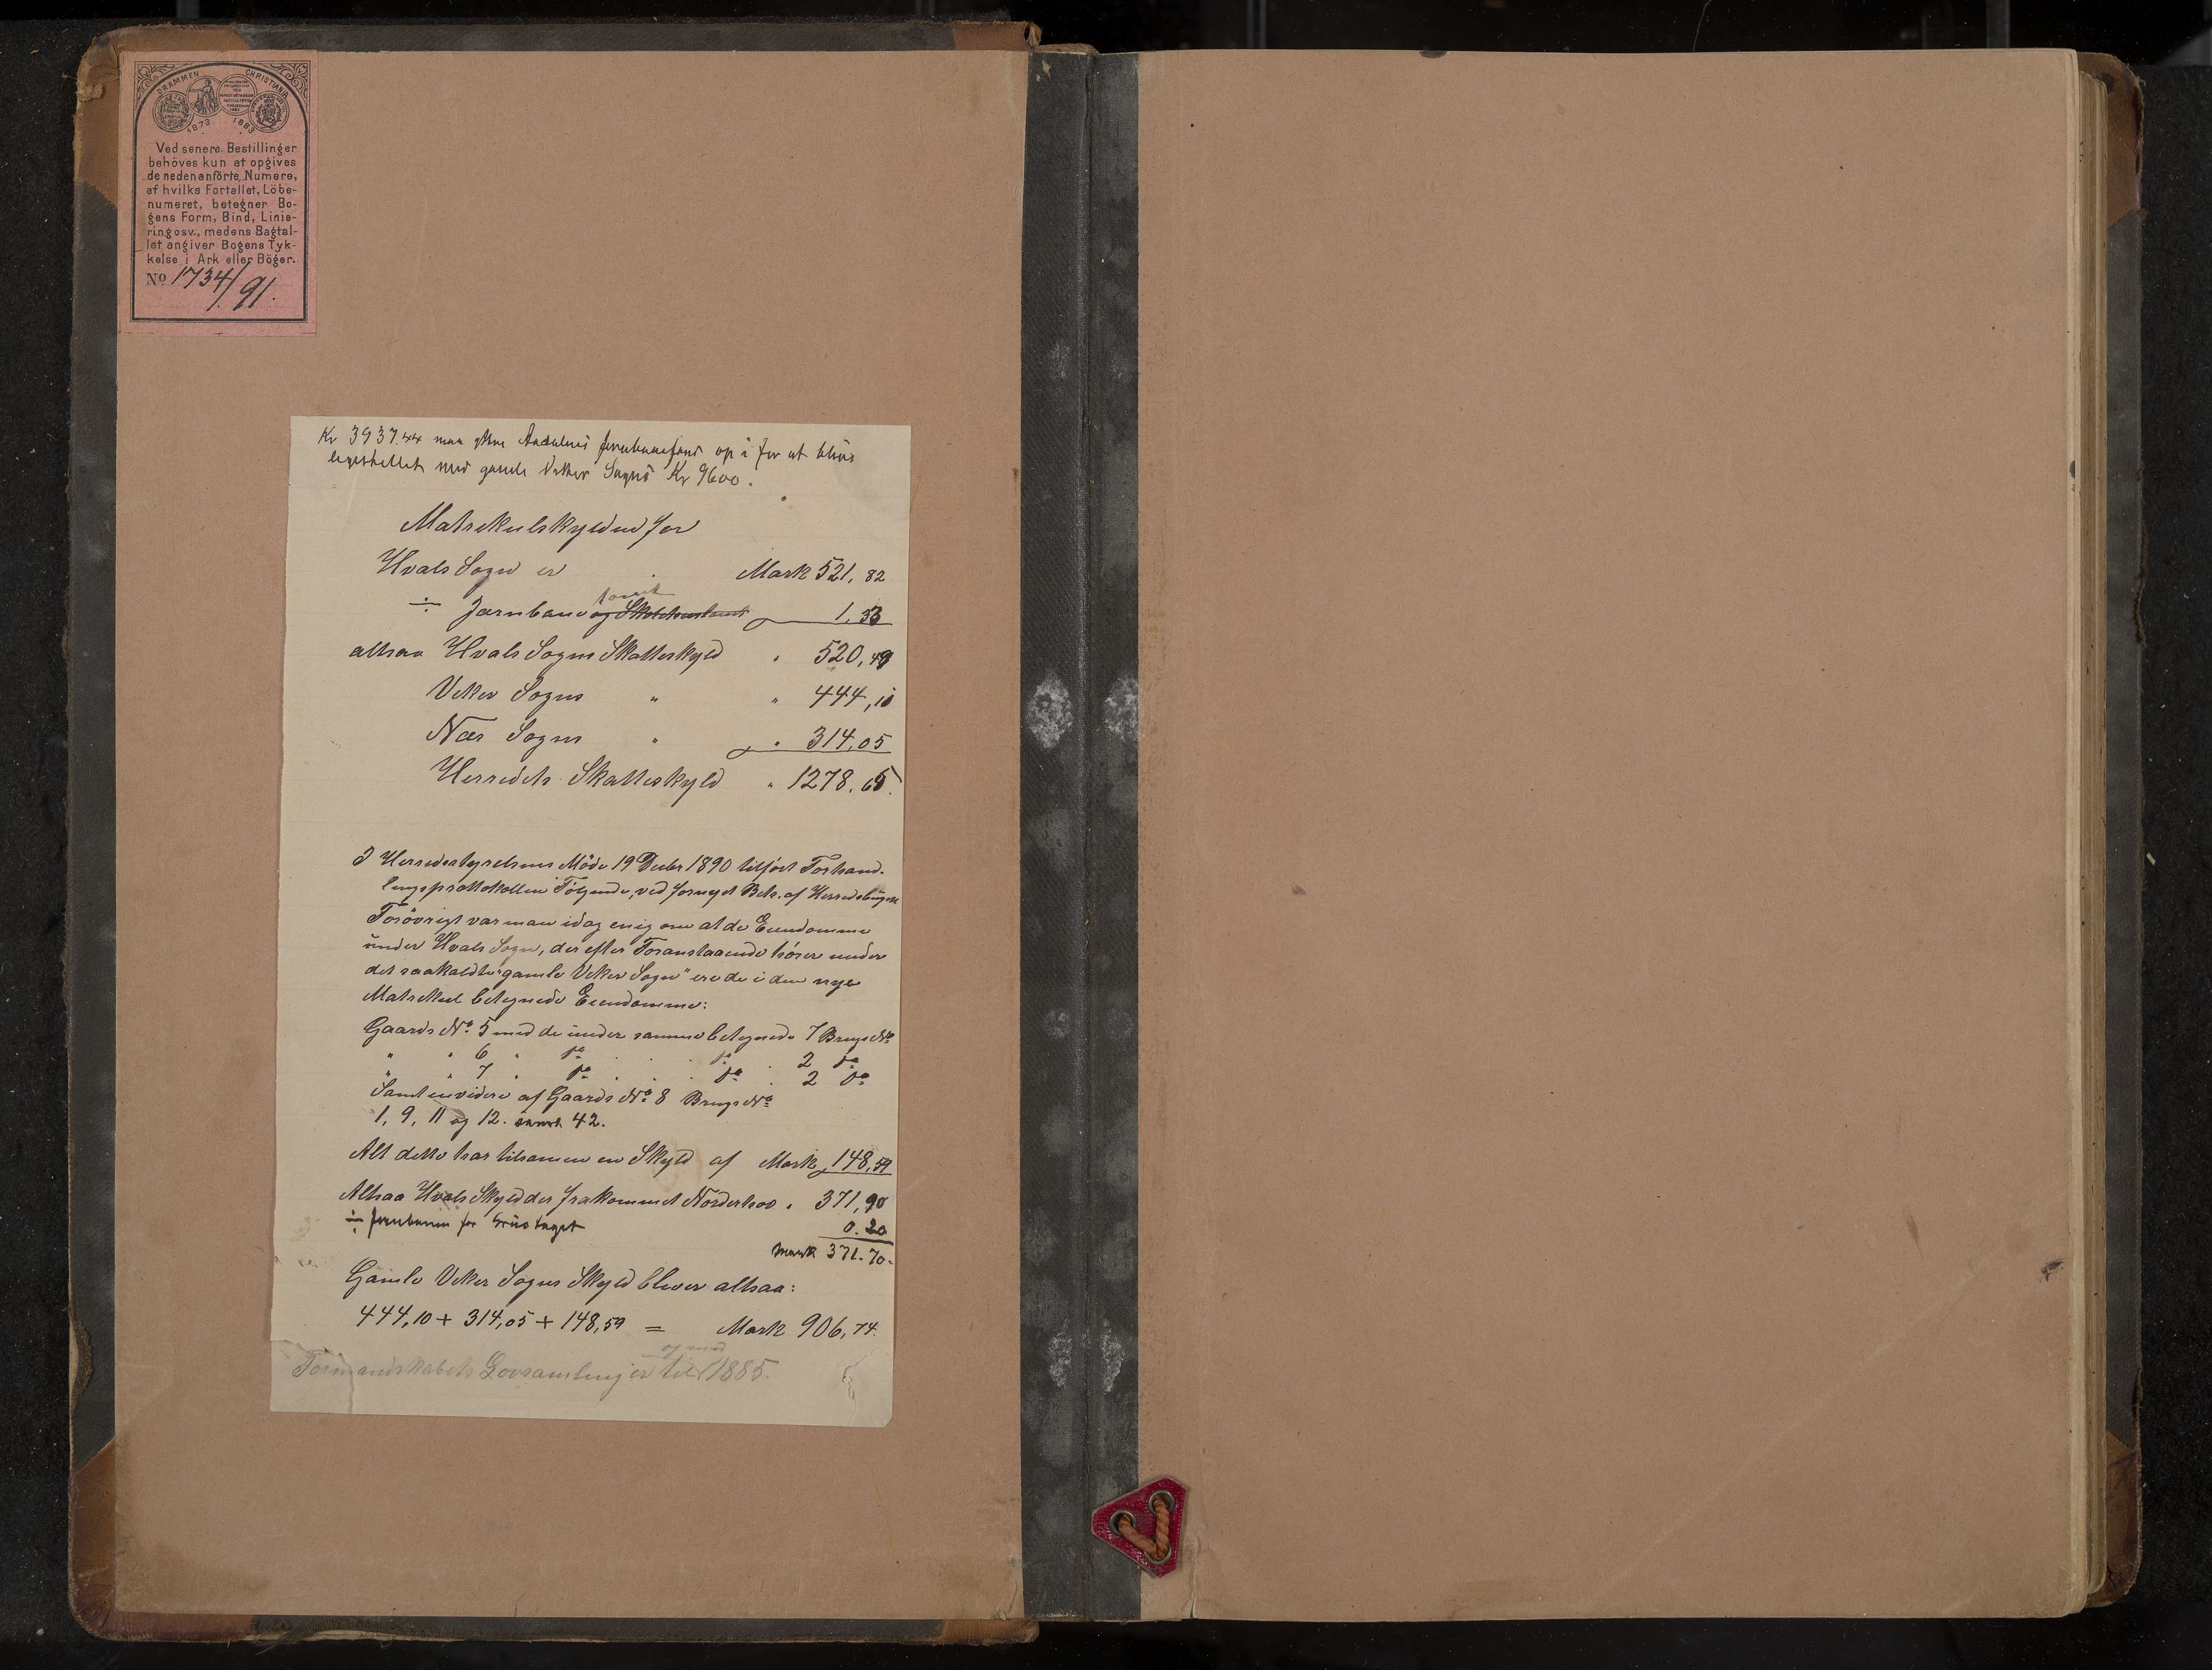 DRAMMEN CHRISTIANIA
1873 1883
Ved senere Bestillinger
behöves kun at opgives
de nedenanförte Numere,
af hvilke Fortallet, Löbe-
numeret, betegner Bo-
gens Form, Bind, Linie-
ring osv., medens Bagtal-
let angiver Bogens Tyk-
kelse i Ark eller Böger.
No 1734/91.
Kr 3937.44 maa Aadalens Jernbanefond op i for at blive
ligestillet med gamle Veker Sogns Kr 9600.
Matrikulskylden for
Hvals Sogn er Mark 521,82
÷ Jernbane og 1.33
altsaa Hvals Sogns Skatteskyld " 520,49
Veker Sogns " " 444,10
Næs Sogns " " 314,05
Herredets Skatteskyld " 1278.65.
I Herredstyrelsens Möde 19 Decbr 1890 tilfört Forhand-
lingsprottokollen Fölgende, ved fornyet Beh. af
Forövrigt var man idag enig om at de Eiendomme
under Hvals Sogn, der efter Foranstaaende hörer under
det saakaldte "gamle Veker Sogn" ere de i den nye
Matrikul betegnede Eiendomme:
Gaards No. 5 med de under samme betegnede 7 Brugs No
" " 6 " do . . do . 2 do
" " 7 " do . . do . 2 do
Samt envidere af Gaards No. 8 Brugs No
1, 9, 11 og 12. samt 42.
Alt dette har tilsamen en Skyld af Mark 148,59
Altsaa Hvals Skyld der frakommet Norderhov " 371,90
÷ Jernbanen for Grustaget 0.20
Mark 371.70.
Gamle Veker Sogns Skyld bliver altsaa:
444,10 + 314,05 + 148,59 = Mark 906,74.
og med
Formandskabets Lovsamlinger til 1885.